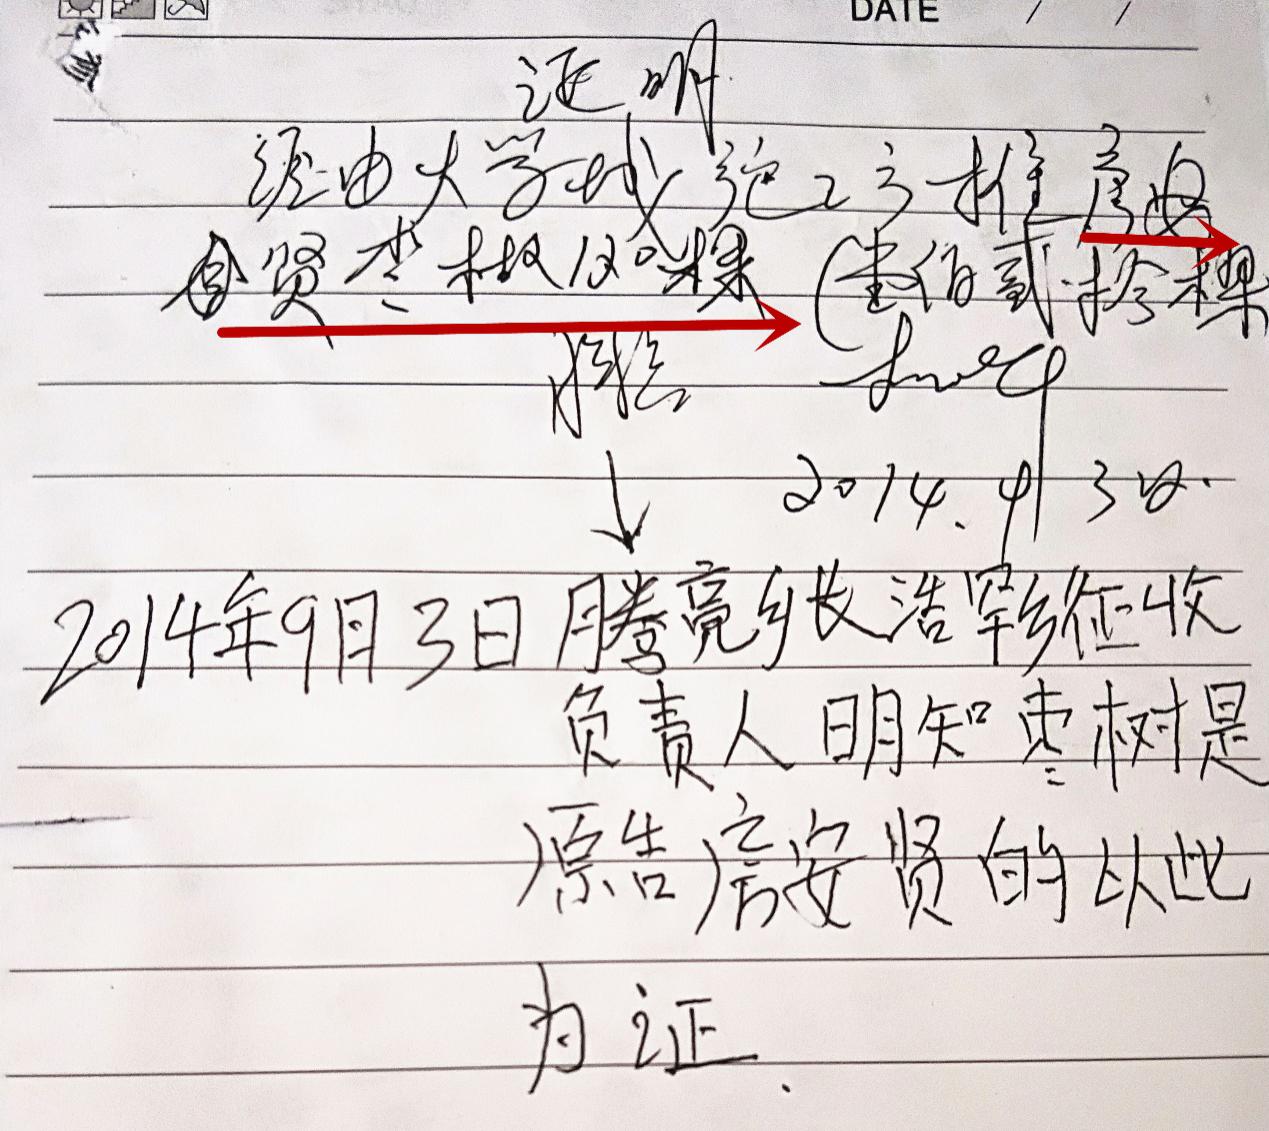 DATE / /
证明
经由大学城施工方推房安
贤枣树120棵(壹佰贰拾棵
2014.9月3日.
2014年9月3日 腾亮乡长浩罕乡征收
负责人明知枣树是
原告房安贤的以此
为证.